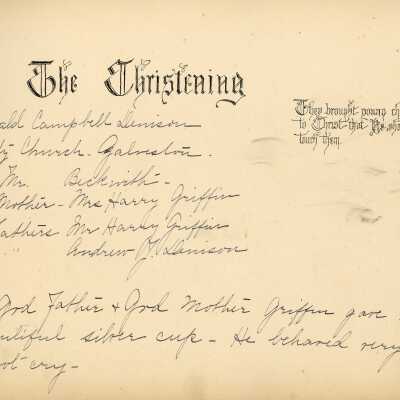 The Christening
They brought young ch
to Christ that He sho
touch them.
ald Campbell Denison
ty Church. Galveston.
Mr. Beckwith-
Mother - Mrs Harry Griffin
athers Mr Harry Griffin
" Andrew J. Denison
God Father + God Mother Griffin gave
utiful silver cup - He behaved very
ot cry -